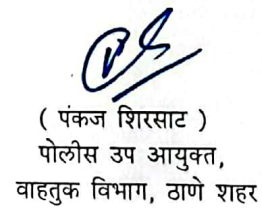 ( पंकज शिरसाट )
पोलीस उप आयुक्त,
वाहतुक विभाग, ठाणे शहर